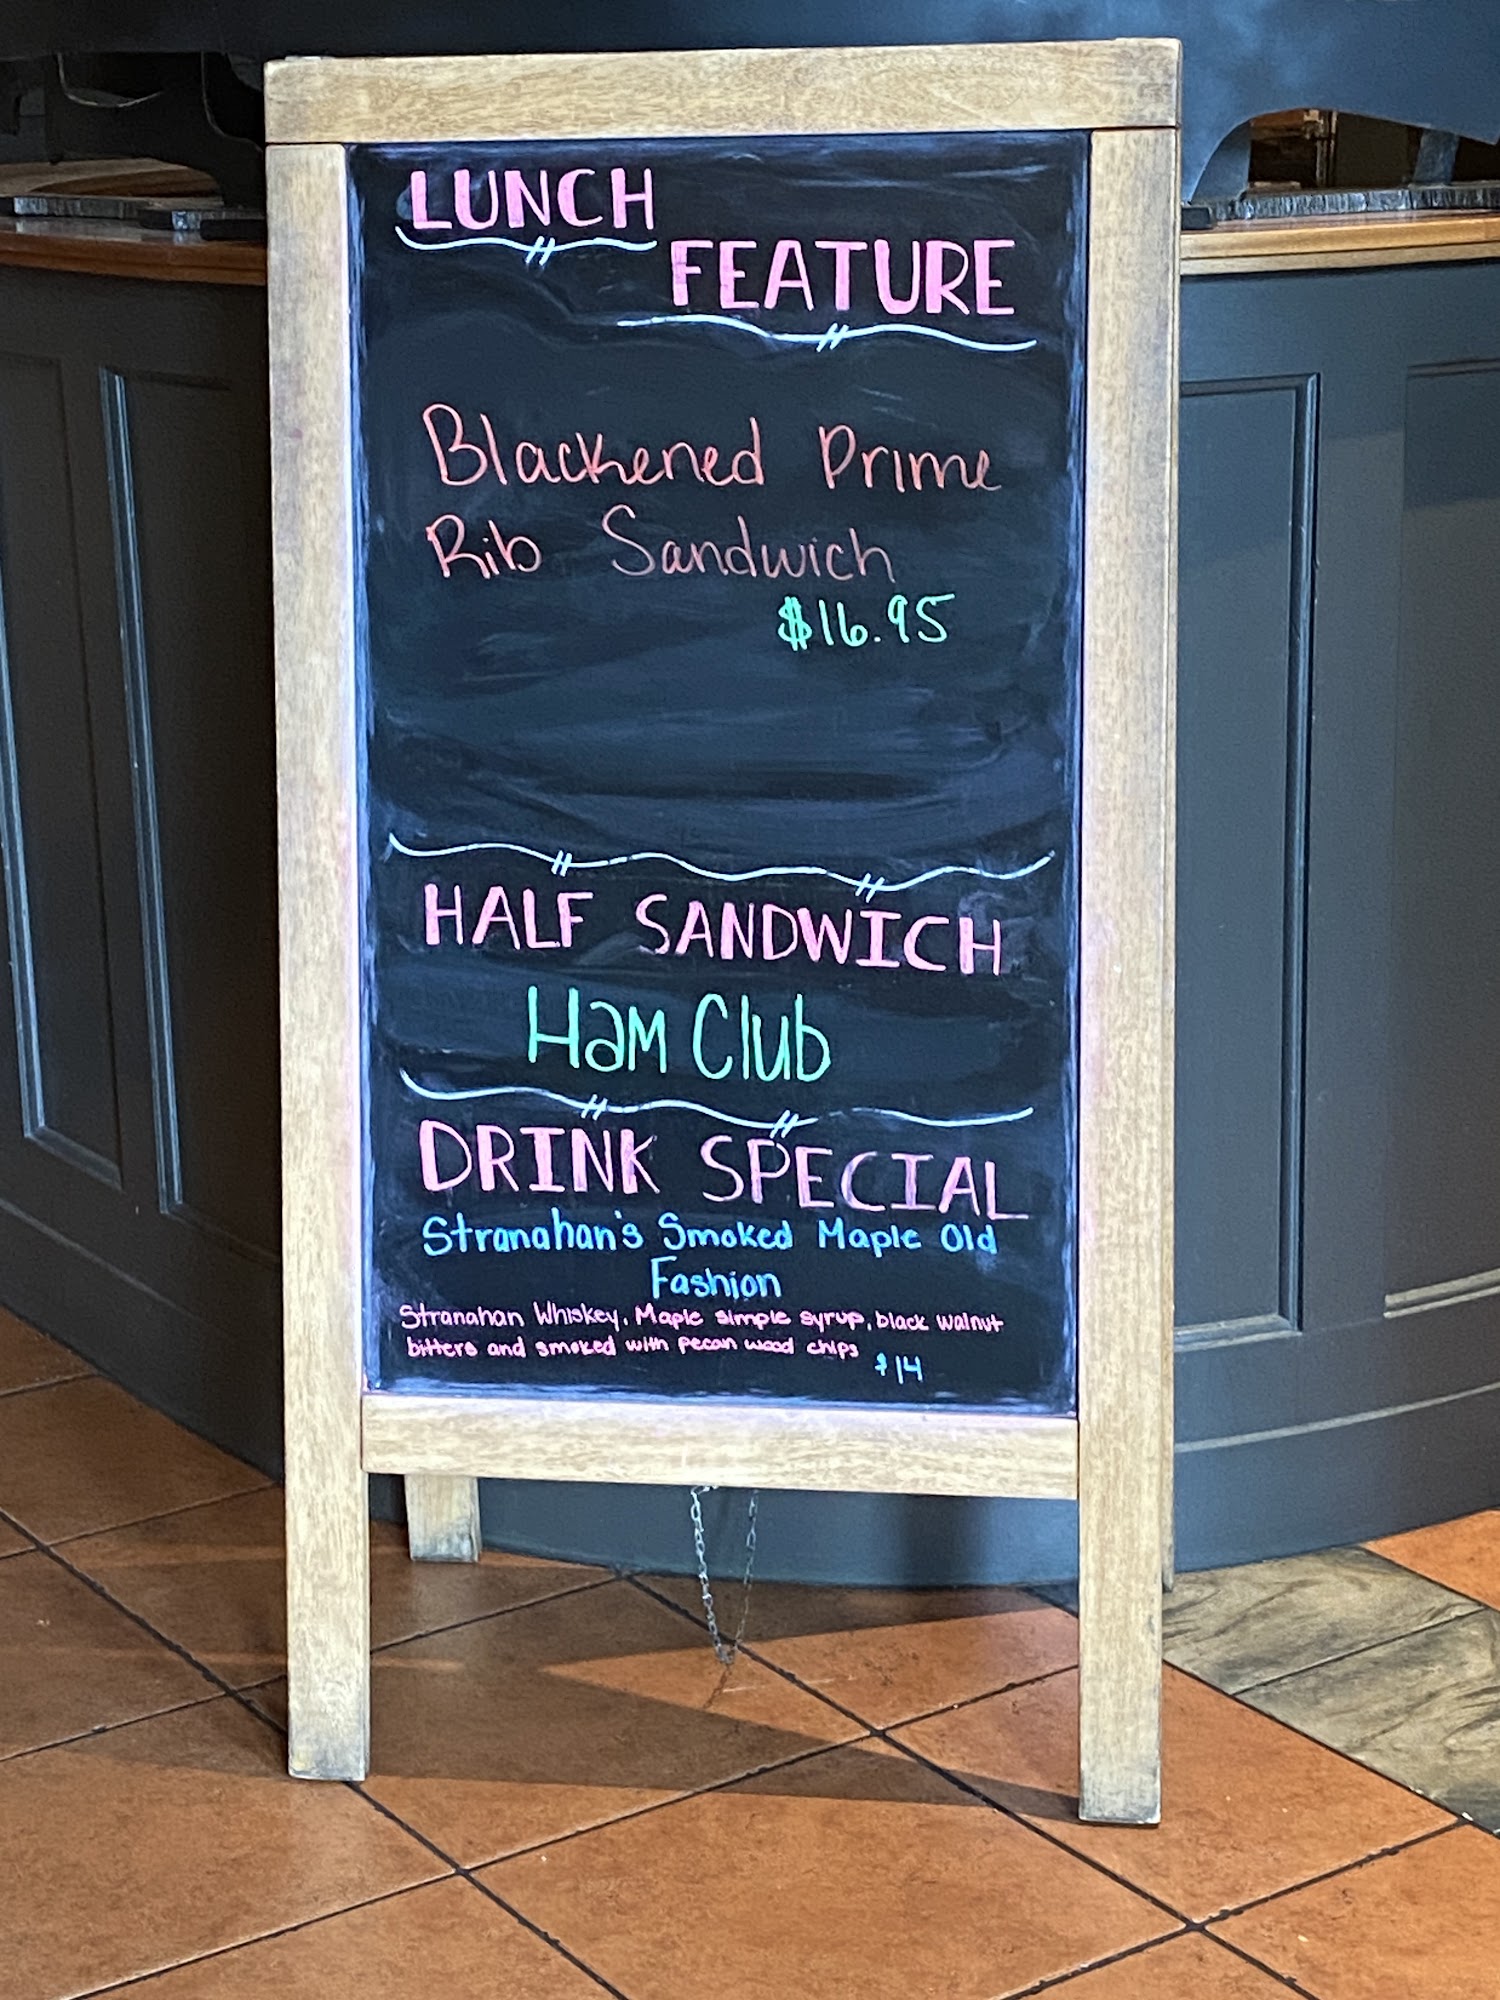 LUNCH
FEATURE
Blackened Prime
Rib Sandwich
$16.95
HALF SANDWICH
Ham Club
DRINK SPECIAL
Stranahan's Smoked Maple Old
Fashion
Stranahan Whiskey, Maple simple syrup, black walnut
bitters and smoked with pecan wood chips
$14